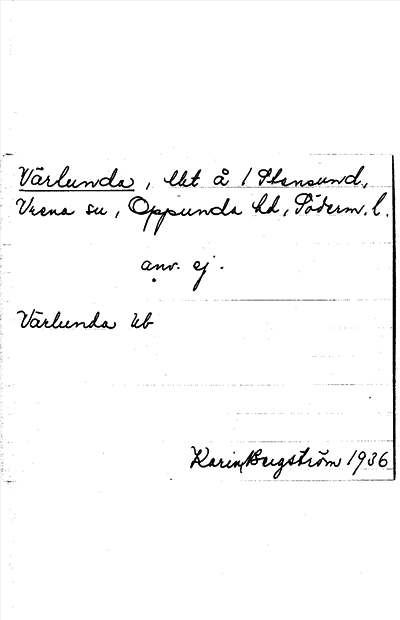 Värlunda, lht å 1 Stensund,
Vrena sn, Oppunda hd, Söderm. l.
anv. ej.
Värlunda Eb
Karin Bergström 1936